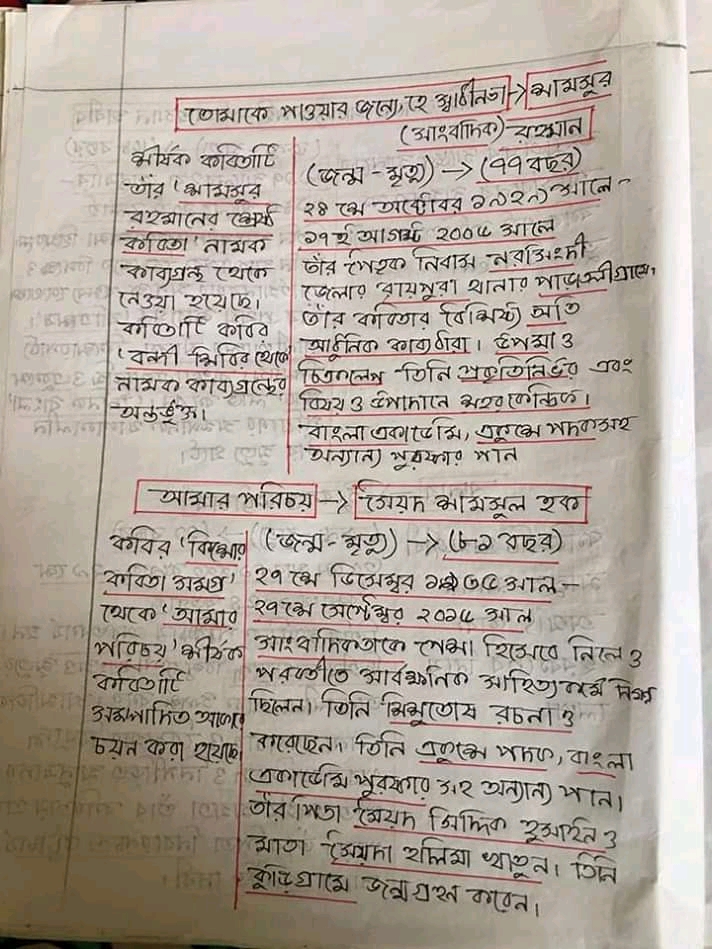 তোমাকে পাওয়ার জন্যে, হে স্বাধীনতা → শামসুর
(সাংবাদিক) রহমান
শীর্ষক কবিতাটি
তাঁর 'শামসুর
রহমানের শ্রেষ্ঠ
কবিতা' নামক
কাব্যগ্রন্থ থেকে
নেওয়া হয়েছে।
কবিতাটি কবির
'বন্দী শিবির থেকে'
নামক কাব্যগ্রন্থের
অন্তর্ভুক্ত।
(জন্ম - মৃত্যু) → (৭৭ বছর)
২৪ শে অক্টোবর ১৯২৯ সালে -
১৭ই আগস্ট ২০০৬ সালে
তাঁর পৈতৃক নিবাস নরসিংদী
জেলার রায়পুরা থানার পাড়াতলী গ্রামে।
তাঁর কবিতার বৈশিষ্ট্য অতি
আধুনিক কাব্যধারা। উপমা ও
চিত্রকল্পে তিনি প্রকৃতিনির্ভর এবং
বিষয় ও উপাদানে শহরকেন্দ্রিক।
বাংলা একাডেমি, একুশে পদকসহ
অন্যান্য পুরষ্কার পান
আমার পরিচয় → সৈয়দ শামসুল হক
কবির 'কিশোর
কবিতা সমগ্র'
থেকে 'আমার
পরিচয়' শীর্ষক
কবিতাটি
সম্পাদিত আকারে
চয়ন করা হয়েছে।
(জন্ম - মৃত্যু) → (৮১ বছর)
২৭ শে ডিসেম্বর ১৯৩৫ সাল -
২৭ শে সেপ্টেম্বর ২০১৬ সাল
সাংবাদিকতাকে পেশা হিসেবে নিলেও
পরবর্তীতে সার্বক্ষনিক সাহিত্যকর্মে নিমগ্ন
ছিলেন। তিনি শিশুতোষ রচনা ও
করেছেন। তিনি একুশে পদক, বাংলা
একাডেমি পুরষ্কার সহ অন্যান্য পান।
তাঁর পিতা সৈয়দ সিদ্দিক হুসাইন ও
মাতা সৈয়দা হালিমা খাতুন। তিনি
কুড়িগ্রামে জন্মগ্রহন করেন।